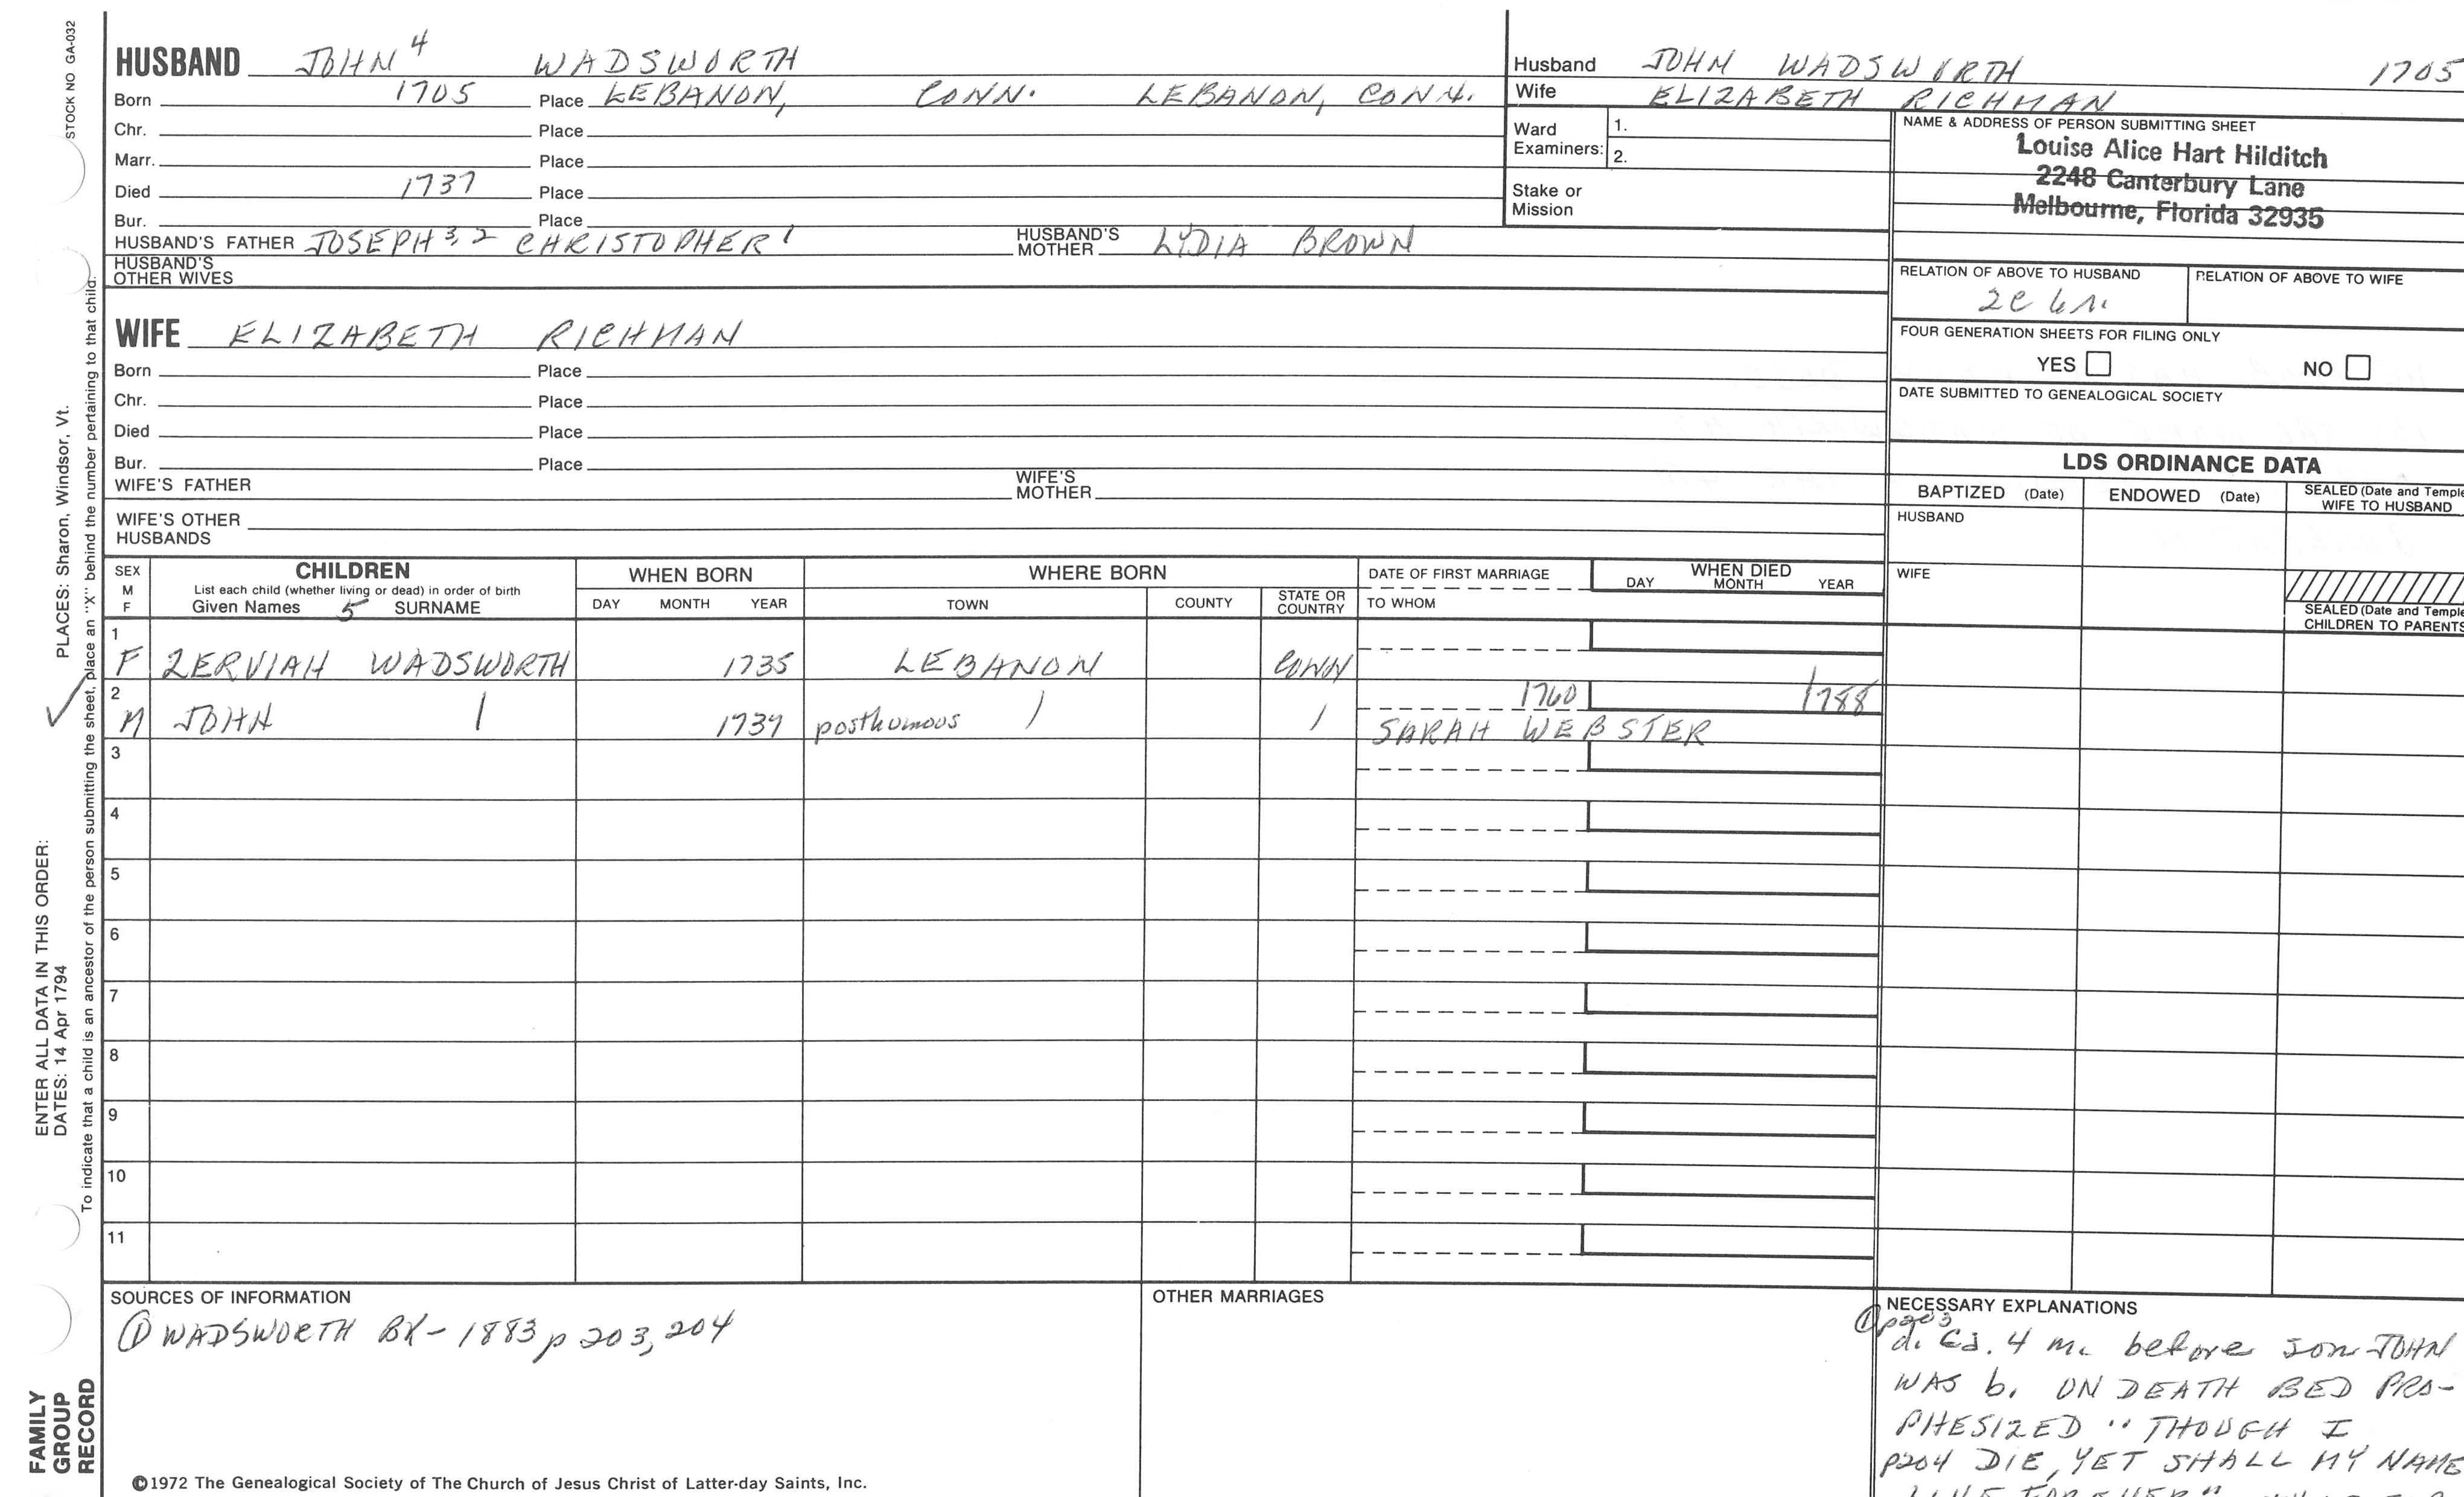 STOCK NO GA-032
PLACES: Sharon, Windsor, Vt.
ENTER ALL DATA IN THIS ORDER:
DATES: 14 Apr 1794
To indicate that a child is an ancestor of the person submitting the sheet, place an "X" behind the number pertaining to that child.
FAMILY
GROUP
RECORD
HUSBAND JOHN 4 WADSWORTH
Born 1705 Place LEBANON, CONN. LEBANON, CONN.
Chr. Place
Marr. Place
Died 1737 Place
Bur. Place
HUSBAND'S FATHER JOSEPH 3,2 CHRISTOPHER 1 HUSBAND'S MOTHER LYDIA BROWN
HUSBAND'S
OTHER WIVES
WIFE ELIZABETH RICHMAN
Born Place
Chr. Place
Died Place
Bur. Place
WIFE'S FATHER WIFE'S MOTHER
WIFE'S OTHER
HUSBANDS
Husband JOHN WADSWORTH 1705
Wife ELIZABETH RICHMAN
Ward
Examiners:
1.
2.
Stake or
Mission
NAME & ADDRESS OF PERSON SUBMITTING SHEET
Louise Alice Hart Hilditch
2248 Canterbury Lane
Melbourne, Florida 32935
RELATION OF ABOVE TO HUSBAND RELATION OF ABOVE TO WIFE
2C 6r.
FOUR GENERATION SHEETS FOR FILING ONLY
YES NO
DATE SUBMITTED TO GENEALOGICAL SOCIETY
LDS ORDINANCE DATA
BAPTIZED (Date) ENDOWED (Date) SEALED (Date and Temple
WIFE TO HUSBAND
HUSBAND
WIFE
SEALED (Date and Temple
CHILDREN TO PARENTS
SEX
M
F
CHILDREN
List each child (whether living or dead) in order of birth
Given Names 5 SURNAME
WHEN BORN
DAY MONTH YEAR
WHERE BORN
TOWN COUNTY STATE OR COUNTRY
DATE OF FIRST MARRIAGE
TO WHOM
WHEN DIED
DAY MONTH YEAR
1
F ZERVIAH WADSWORTH 1735 LEBANON CONN
2 1760 1788
M JOHN 1737 posthumous SARAH WEBSTER
3
4
5
6
7
8
9
10
11
SOURCES OF INFORMATION
① WADSWORTH BK-1883 p 203, 204
OTHER MARRIAGES
NECESSARY EXPLANATIONS
① p203
d. 4 m. before son JOHN
WAS b. ON DEATH BED PRO-
PHESIZED "THOUGH I
p204 DIE, YET SHALL MY NAME
©1972 The Genealogical Society of The Church of Jesus Christ of Latter-day Saints, Inc.